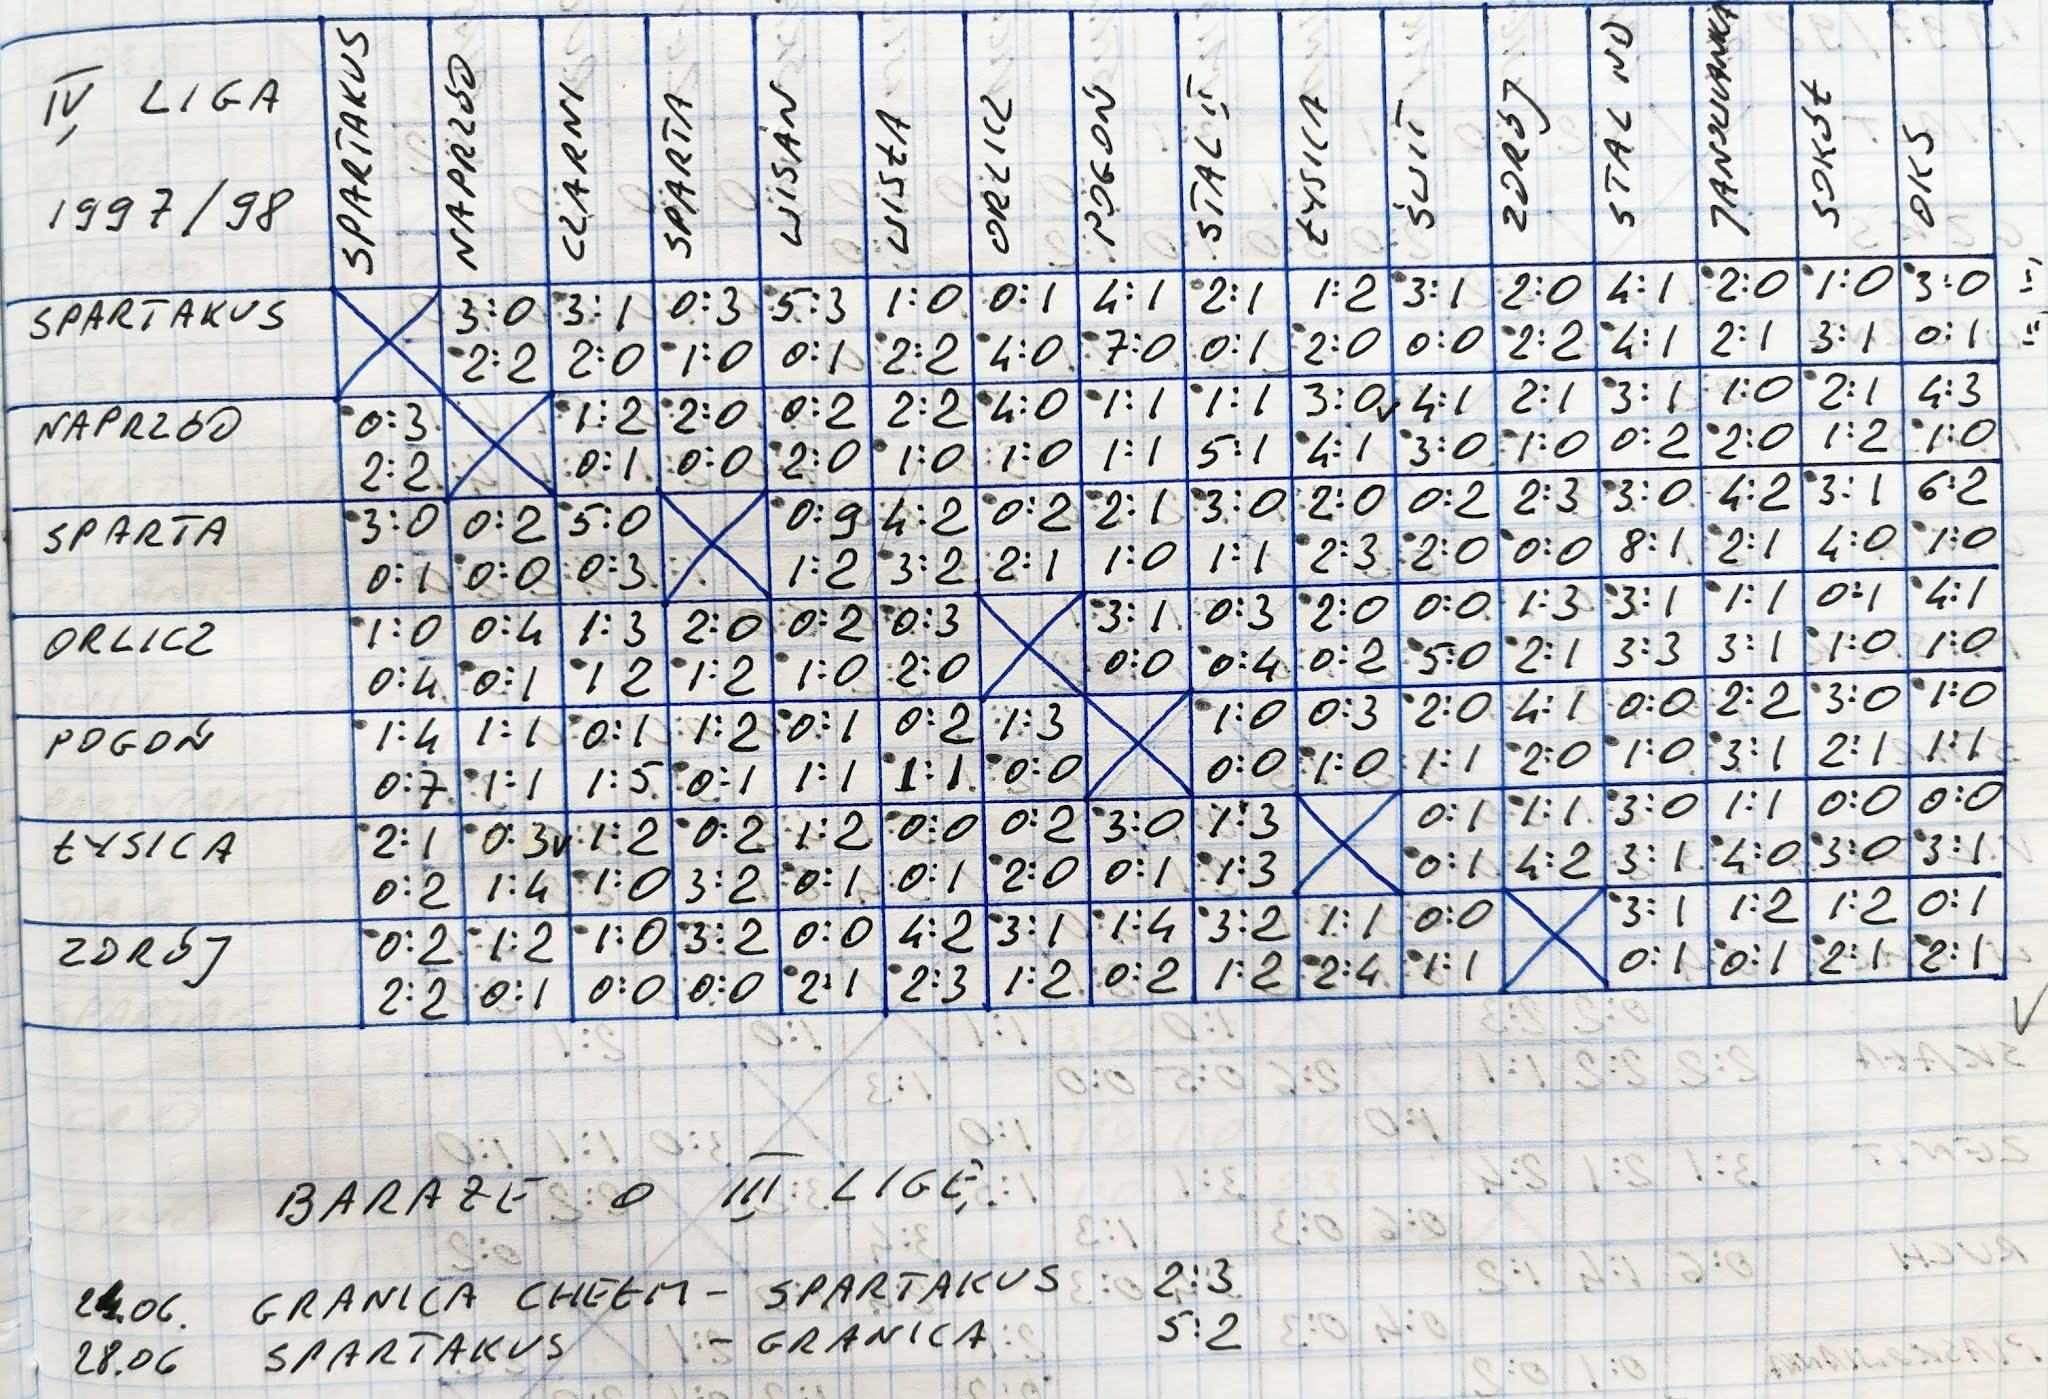 IV LIGA
1997/98
SPARTAKUS NAPRZÓD CZARNI SPARTA WISAN WISŁA ORLICZ POGOŃ STAL II ŁYSICA ŚWIT ZDRÓJ STAL ND JANSUIANKA SOKÓŁ OKS
SPARTAKUS 3:0 3:1 0:3 5:3 1:0 0:1 4:1 2:1 1:2 3:1 2:0 4:1 2:0 1:0 3:0
2:2 2:0 1:0 0:1 2:2 4:0 7:0 0:1 2:0 0:0 2:2 4:1 2:1 3:1 0:1
NAPRZÓD 0:3 1:2 2:0 0:2 2:2 4:0 1:1 1:1 3:0v 4:1 2:1 3:1 1:0 2:1 4:3
2:2 0:1 0:0 2:0 1:0 1:0 1:1 5:1 4:1 3:0 1:0 0:2 2:0 1:2 1:0
SPARTA 3:0 0:2 5:0 0:9 4:2 0:2 2:1 3:0 2:0 0:2 2:3 3:0 4:2 3:1 6:2
0:1 0:0 0:3 1:2 3:2 2:1 1:0 1:1 2:3 2:0 0:0 8:1 2:1 4:0 1:0
ORLICZ 1:0 0:4 1:3 2:0 0:2 0:3 3:1 0:3 2:0 0:0 1:3 3:1 1:1 0:1 4:1
0:4 0:1 1 2 1:2 1:0 2:0 0:0 0:4 0:2 5:0 2:1 3:3 3:1 1:0 1:0
POGOŃ 1:4 1:1 0:1 1:2 0:1 0:2 1:3 1:0 0:3 2:0 4:1 0:0 2:2 3:0 1:0
0:7 1:1 1:5 0:1 1:1 1:1 0:0 0:0 1:0 1:1 2:0 1:0 3:1 2:1 1:1
ŁYSICA 2:1 0:3v 1:2 0:2 1:2 0:0 0:2 3:0 1:3 0:1 1:1 3:0 1:1 0:0 0:0
0:2 1:4 1:0 3:2 0:1 0:1 2:0 0:1 1:3 0:1 4:2 3:1 4:0 3:0 3:1
ZDRÓJ 0:2 1:2 1:0 3:2 0:0 4:2 3:1 1:4 3:2 1:1 0:0 3:1 1:2 1:2 0:1
2:2 0:1 0:0 0:0 2:1 2:3 1:2 0:2 1:2 2:4 1:1 0:1 0:1 2:1 2:1
BARAŻE O III LIGĘ
24.06. GRANICA CHEŁM - SPARTAKUS 2:3
28.06 SPARTAKUS - GRANICA 5:2